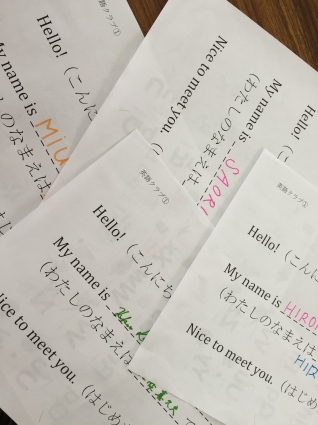 英語クラブ①
Hello! (こんに
My name is MIU
(わたしのなまえは
Hello! (
My name is SAORI
(わたしのなまえは
Nice to meet you. (
英語クラブ①
Hello! (こんにち
My name is
(わたしのなまえは
Nice to meet you. (はじめ
英語クラブ①
Hello! (こんに
My name is HIRO
(わたしのなまえは HIR
Nice to meet you. (はじめ